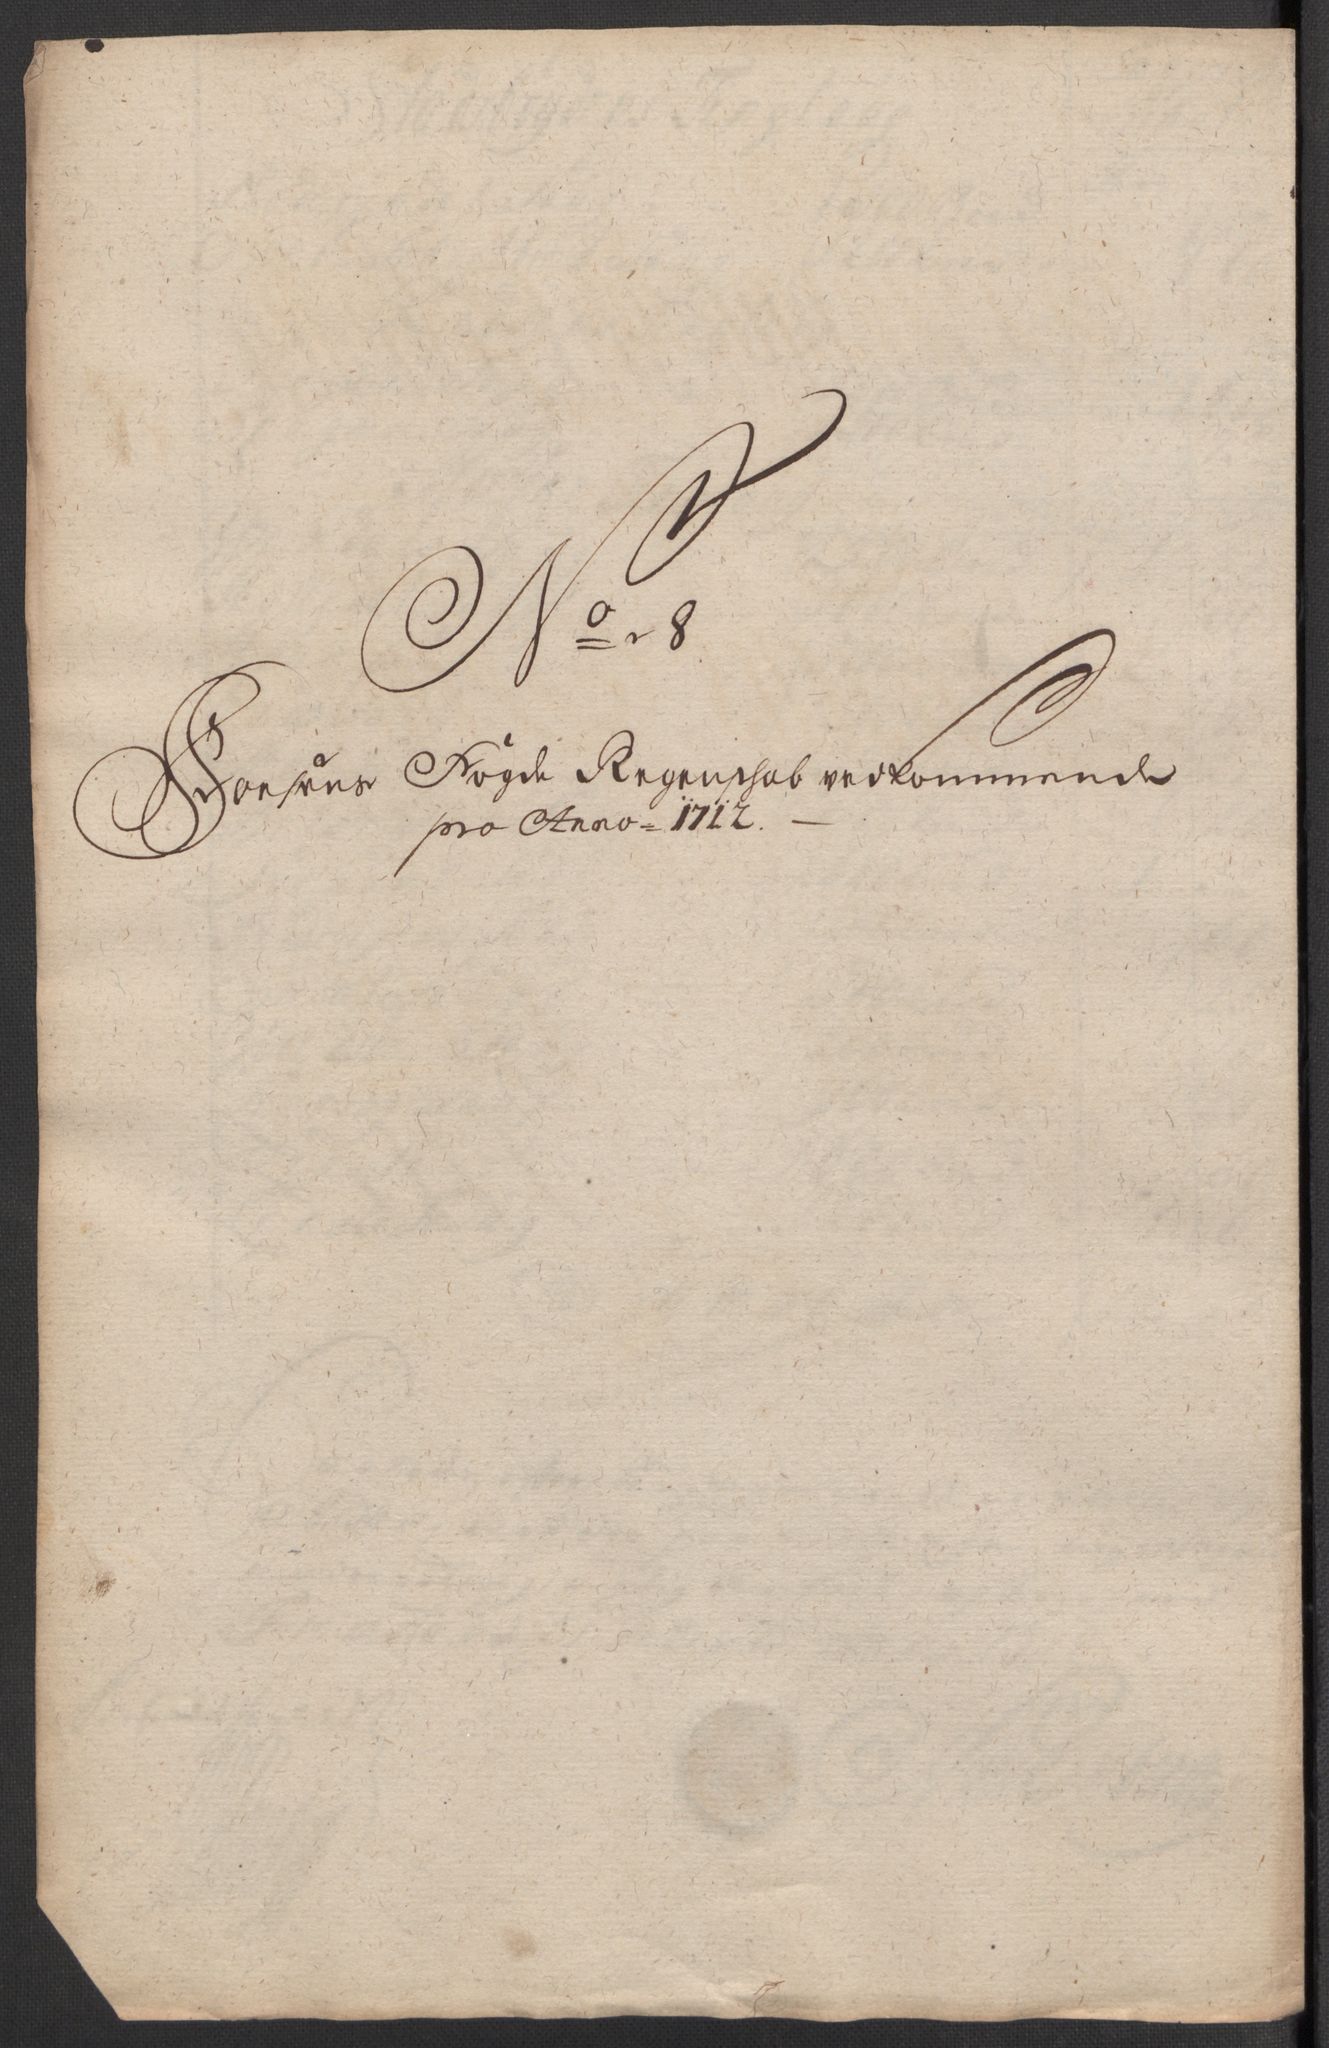 No 8
Foesens Fogde Regenschab vedkommende
pro Anno 1712.